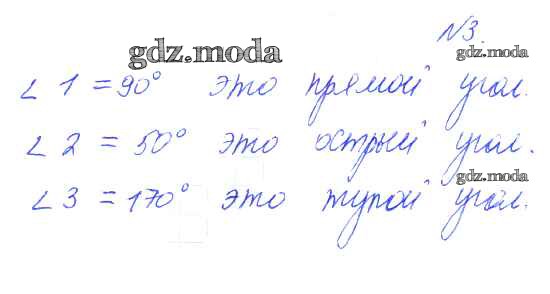 N3.
gdz.moda
gdz.moda
∠1 = 90° это прямой угол.
∠2 = 50° это острый угол.
gdz.moda
∠3 = 170° это тупой угол.